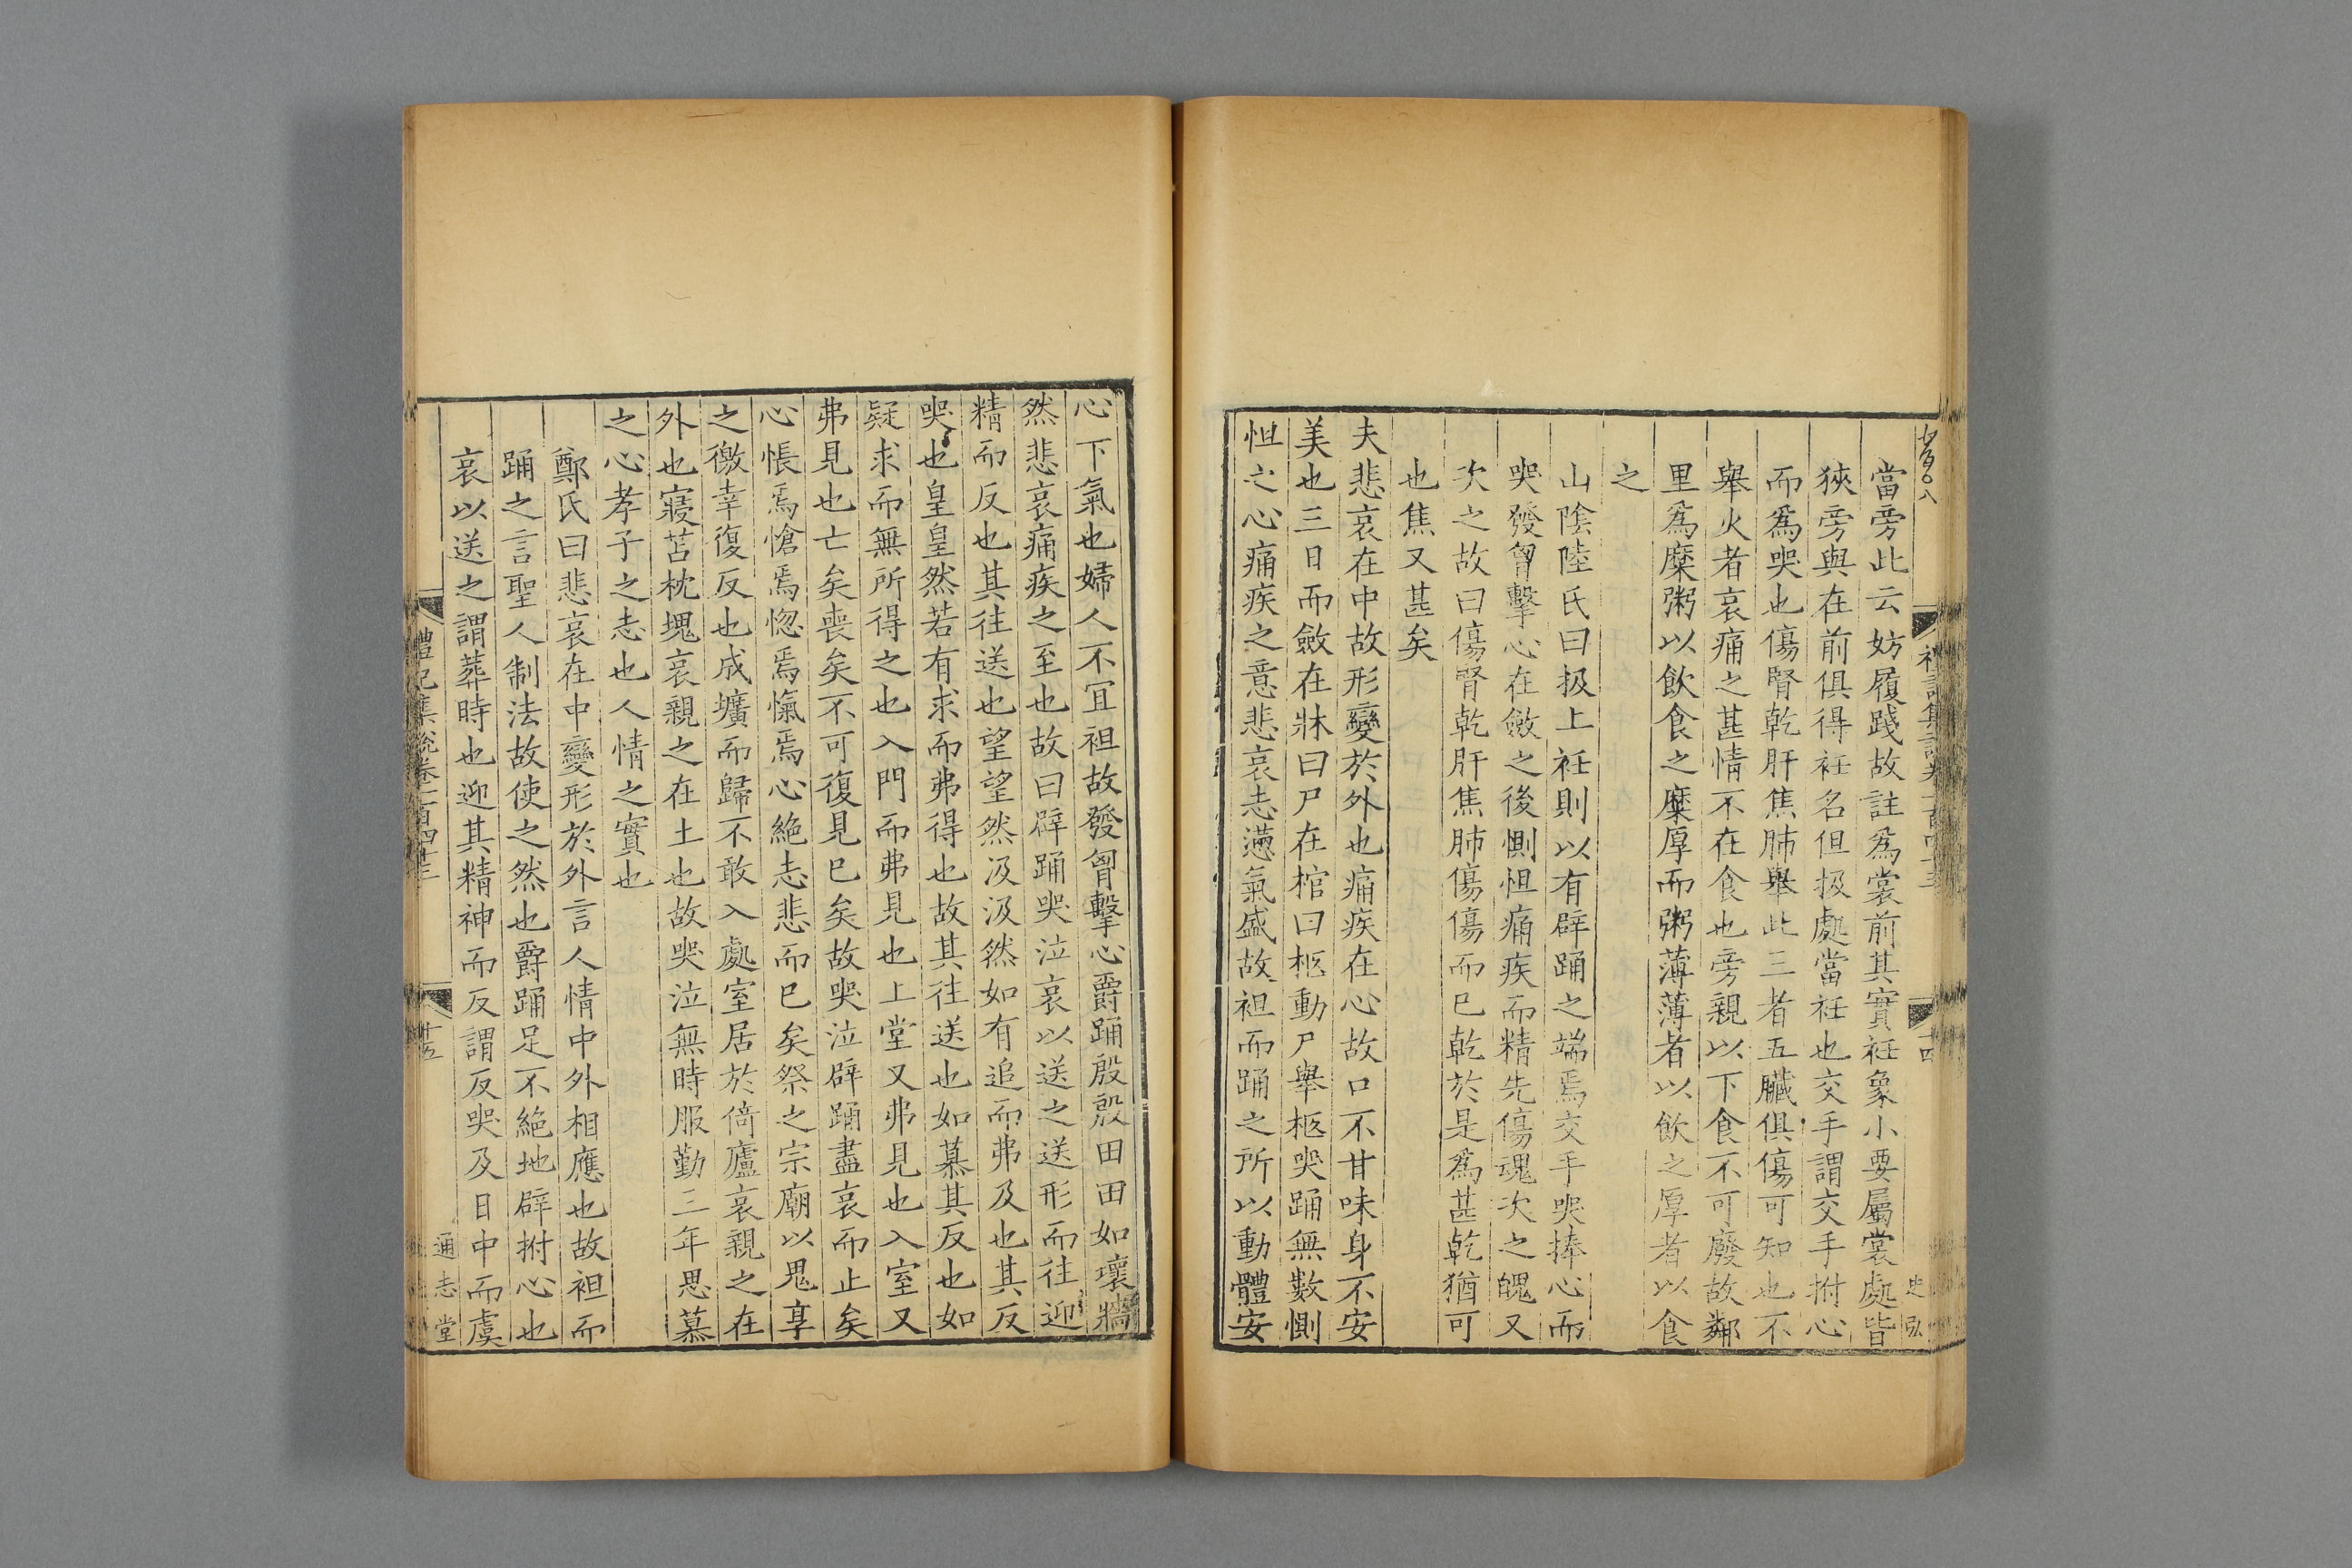 當旁此云妨履踐故註爲裳前其實衽象小要屬裳處皆
狹旁與在前俱得衽名但扱處當衽也交手謂交手拊心
而爲哭也傷腎乾肝焦肺舉此三者五臟俱傷可知也不
舉火者哀痛之甚情不在食也旁親以下食不可廢故鄰
里爲糜粥以飲食之糜厚而粥薄薄者以飲之厚者以食
之
山陰陸氏曰扱上衽則以有辟踊之端焉交手哭捧心而
哭發胷擊心在斂之後惻怛痛疾而精先傷魂次之魄又
次之故曰傷腎乾肝焦肺傷傷而巳乾於是爲甚乾猶可
也焦又甚矣
夫悲哀在中故形變於外也痛疾在心故口不甘味身不安
美也三日而斂在牀曰尸在棺曰柩動尸舉柩哭踊無數惻
怛之心痛疾之意悲哀志懣氣盛故袒而踊之所以動體安
史弘
十四
心下氣也婦人不宜袒故發胷擊心爵踊殷殷田田如壞牆
然悲哀痛疾之至也故曰辟踊哭泣哀以送之送形而往迎
精而反也其往送也望望然汲汲然如有追而弗及也其反
哭也皇皇然若有求而弗得也故其往送也如慕其反也如
疑求而無所得之也入門而弗見也上堂又弗見也入室又
弗見也亡矣喪矣不可復見巳矣故哭泣辟踊盡哀而止矣
心悵焉愴焉惚焉愾焉心絶志悲而巳矣祭之宗廟以鬼享
之徼幸復反也成壙而歸不敢入處室居於倚廬哀親之在
外也寢苫枕塊哀親之在土也故哭泣無時服勤三年思慕
之心孝子之志也人情之實也
鄭氏曰悲哀在中變形於外言人情中外相應也故袒而
踊之言聖人制法故使之然也爵踊足不絶地辟拊心也
哀以送之謂葬時也迎其精神而反謂反哭及日中而虞
禮記集說卷一百四十三
十五
通志堂